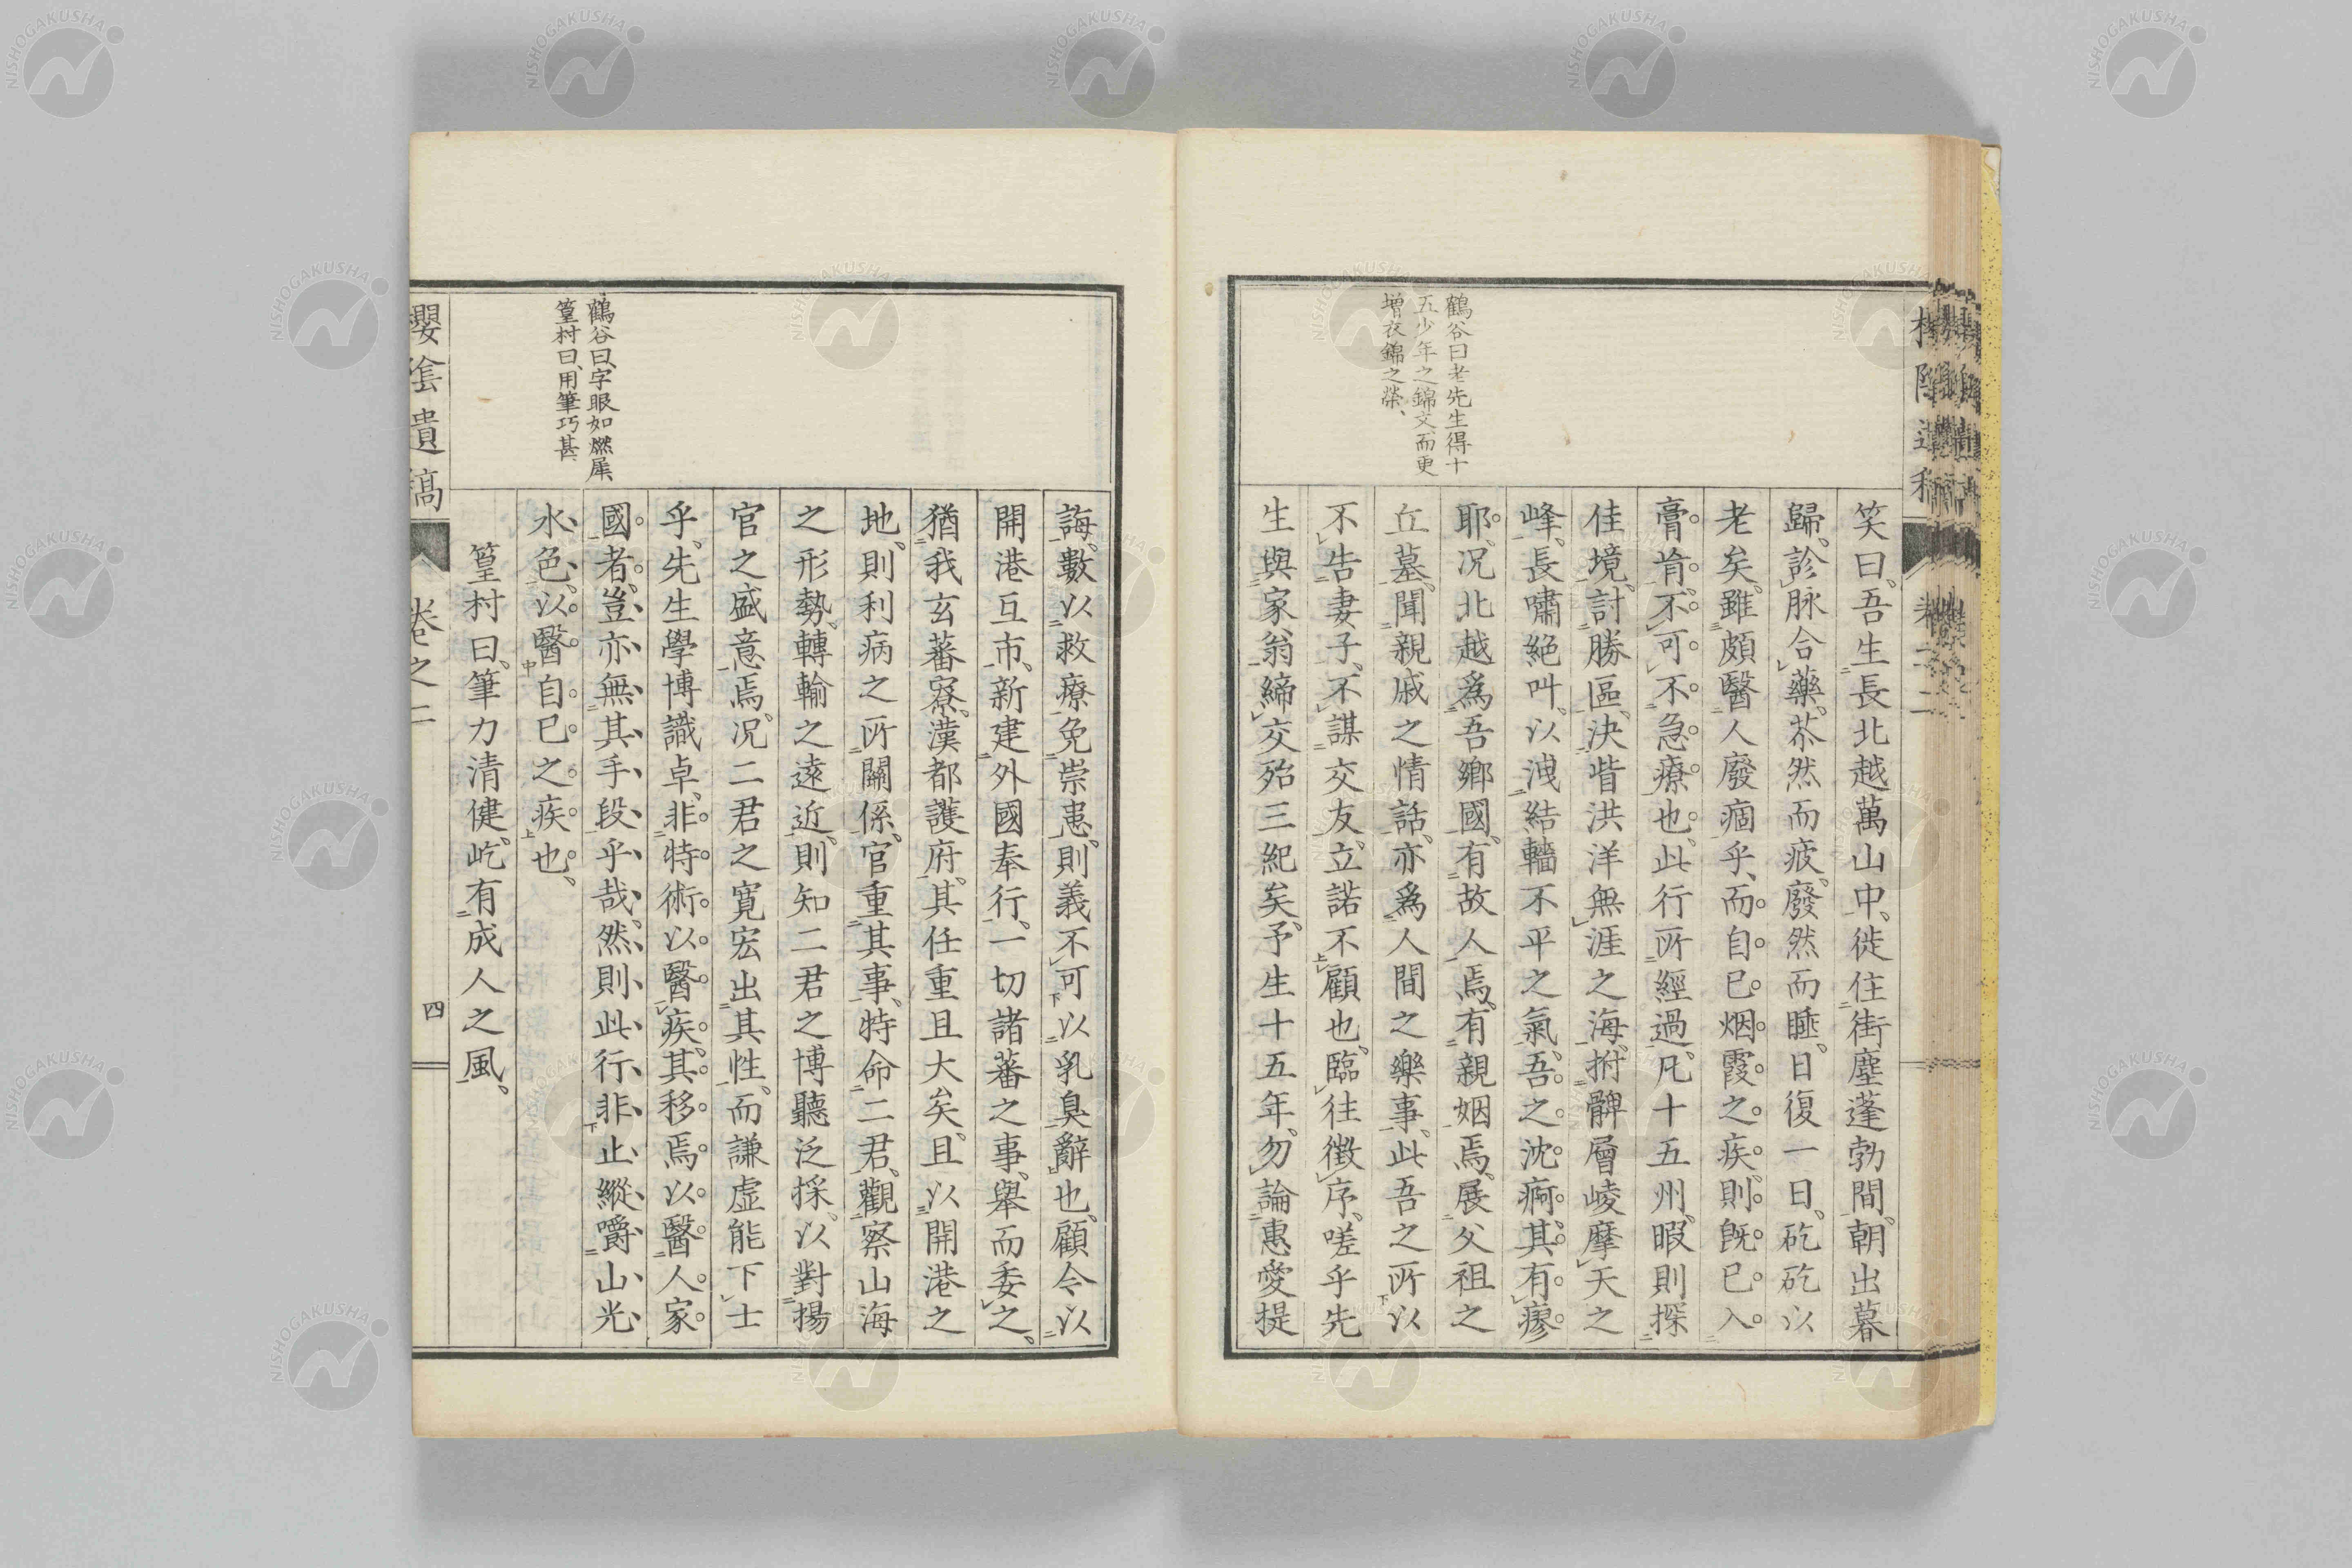 鶴谷曰老先生得十
五少年之錦文、而更
増衣錦之榮、
笑曰、吾生長北越萬山中、徙住街塵蓬勃間、朝出暮
歸、診脉合藥、苶然而疲、廢然而睡、日復一日、矻矻以
老矣、雖頗醫人廢痼乎、而自己烟霞之疾、則既已入
膏肓、不可不急療也、此行所經過、凡十五州、暇則探
佳境、討勝區、決眥洪洋無涯之海、拊髀層崚摩天之
峰、長嘯絶叫、以洩結轖不平之氣、吾之沈痾、其有瘳
耶、况北越爲吾鄉國、有故人焉、有親姻焉、展父祖之
丘墓、聞親戚之情話、亦爲人間之樂事、此吾之所以
不告妻子、不謀交友、立諾不顧也、臨往徴序、嗟乎先
生與家翁締交殆三紀矣、予生十五年、勿論惠愛提
誨、數以救療免崇恚、則義不可以乳臭辭也、顧今以
開港互市、新建外國奉行、一切諸蕃之事、舉而委之、
猶我玄蕃寮、漢都護府、其任重且大矣、且以開港之
地、則利病之所關係、官重其事、特命二君、觀察山海
之形勢、轉輸之遠近、則知二君之博聽泛採、以對揚
官之盛意焉、况二君之寬宏出其性、而謙虛能下士
乎、先生學博識卓、非特術以醫疾、其移焉以醫人家
國者、豈亦無其手段乎哉、然則此行、非止縱嚼山光
水色、以醫自已之疾也、
篁村曰、筆力清健、屹有成人之風、
鶴谷曰、字眼如燃犀
篁村曰、用筆巧甚
櫻陰遺稿
卷之二
四
NISHOGAKUSHA